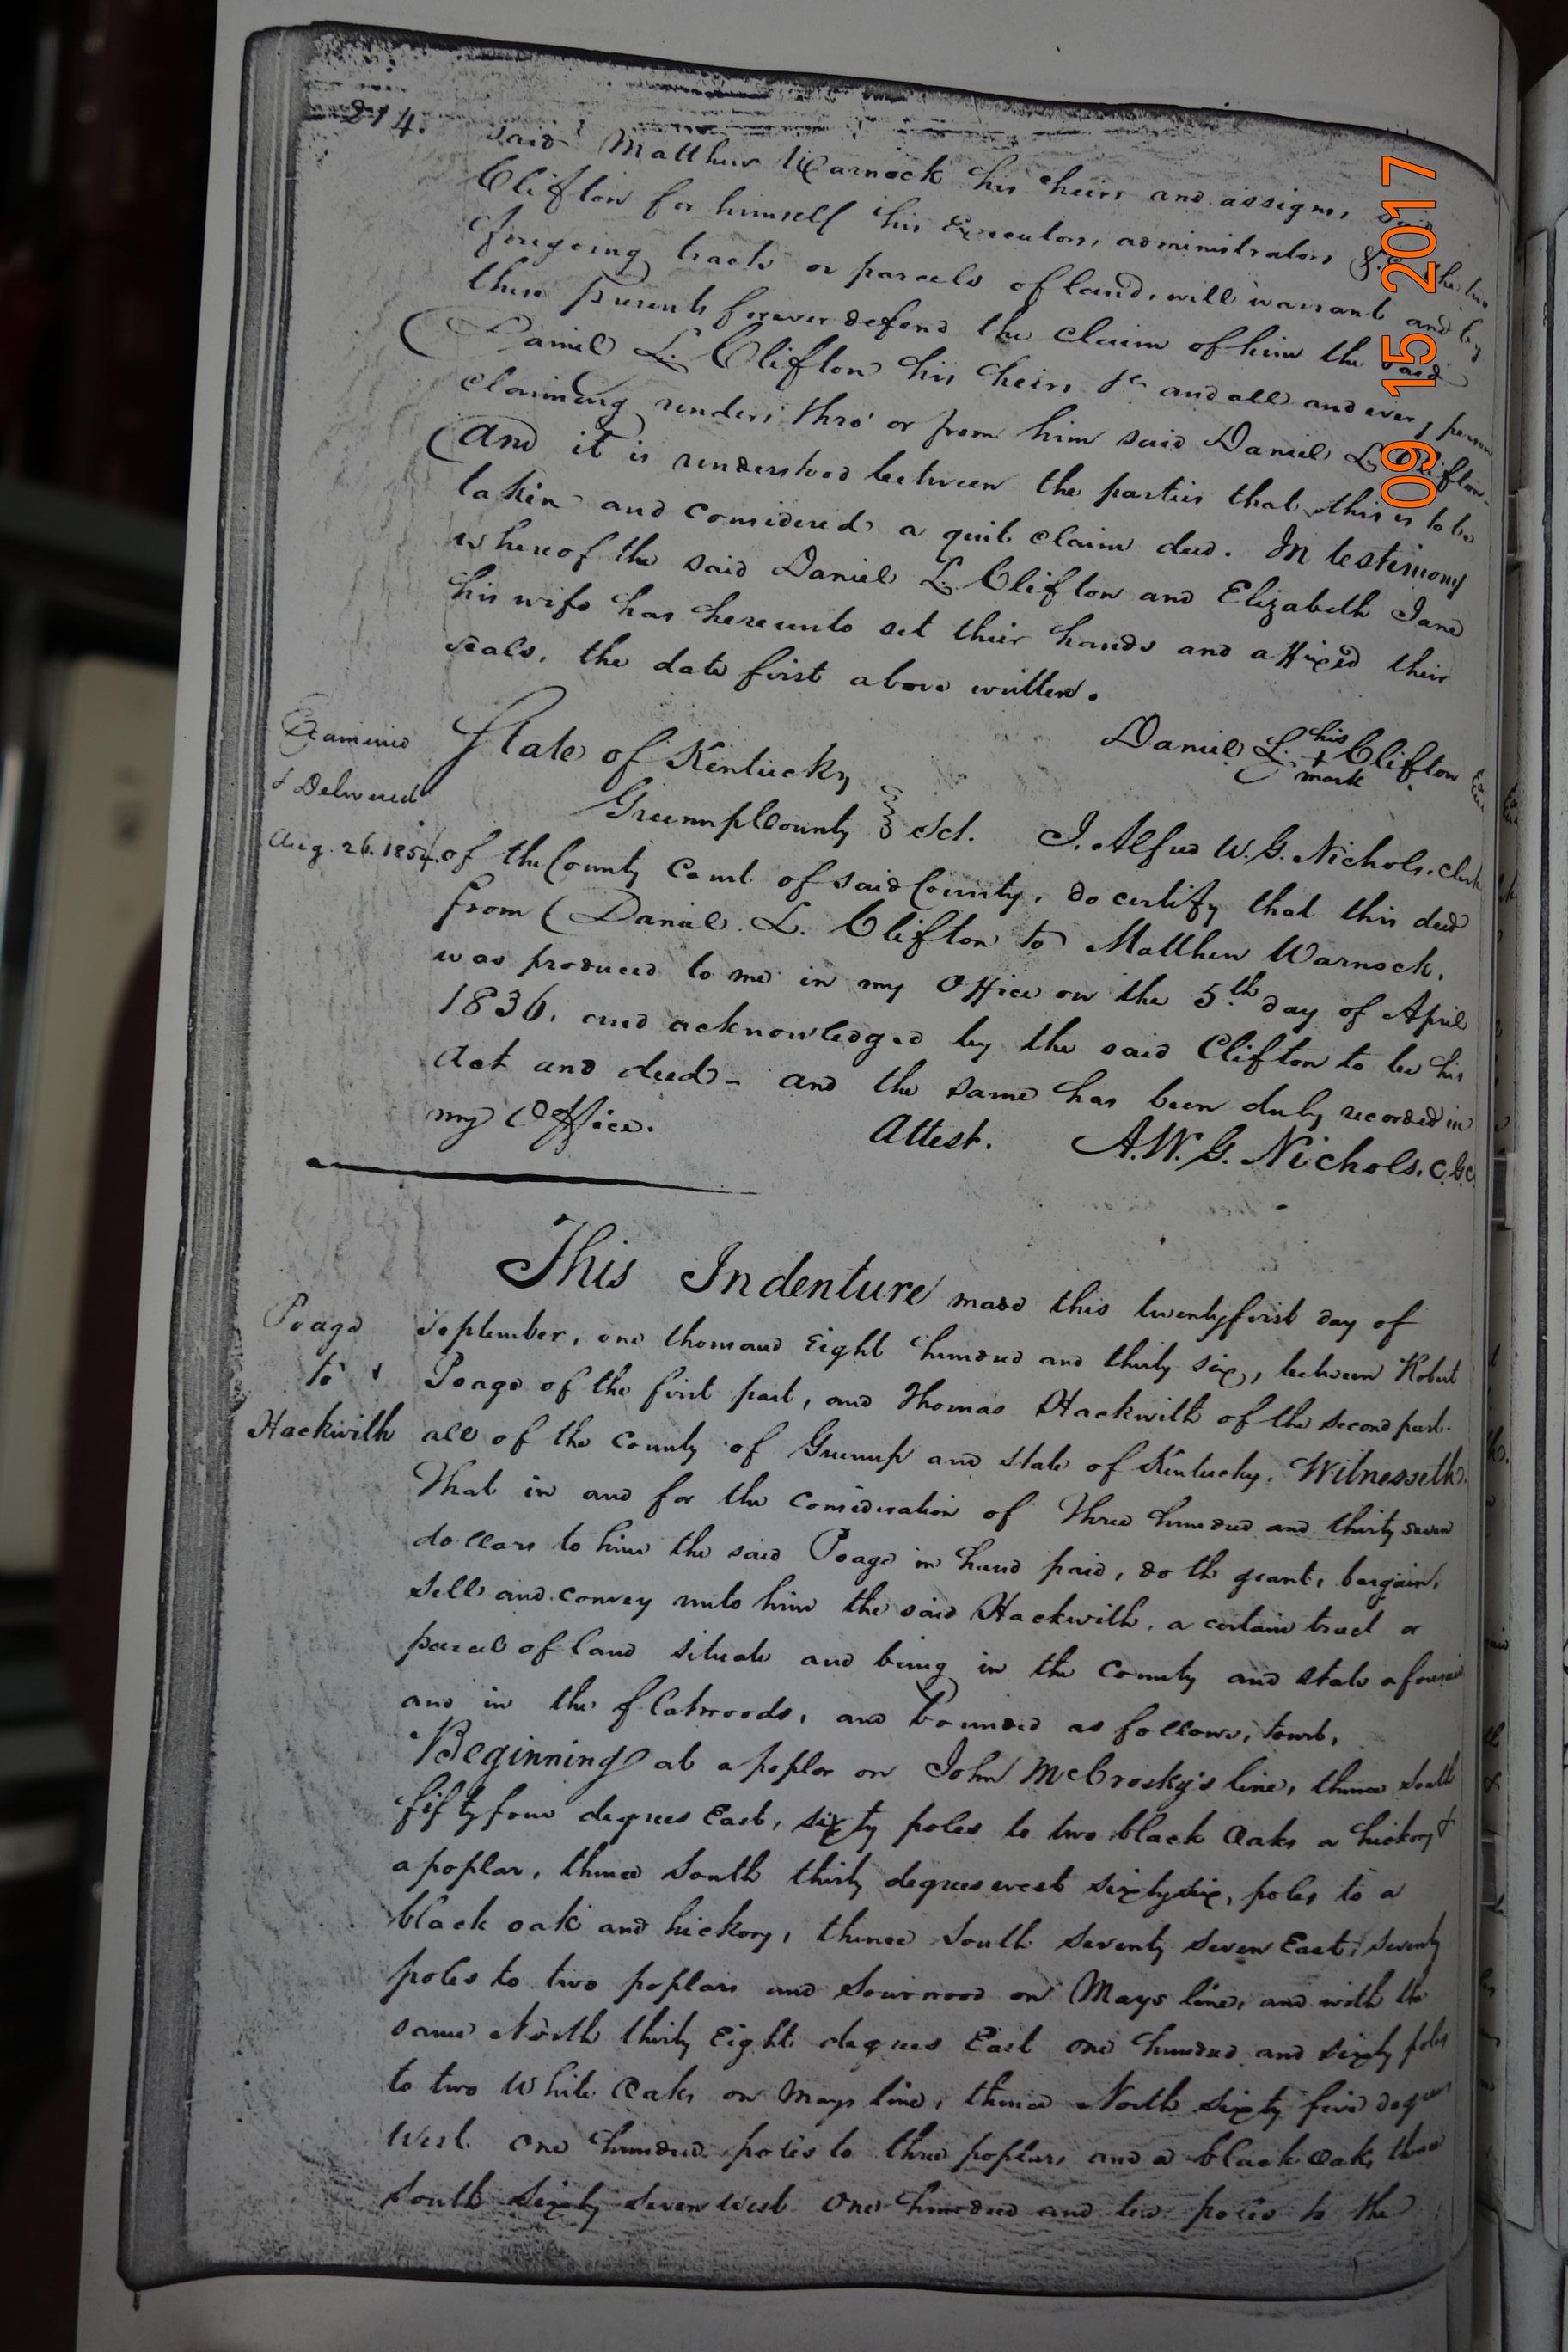 214.
said Matthew Warnock his heirs and assigns, said
Clifton for himself his Executors, administrators &c the two
foregoing tracts or parcels of land, will warrant and by
these presents forever defend the claim of him the said
Daniel L. Clifton his heirs &c and all and every person
claiming under, thro' or from him said Daniel L. Clifton
And it is understood between the parties that this is to be
taken and considered a quit claim deed. In testimony
whereof the said Daniel L. Clifton and Elizabeth Jane
his wife has hereunto set their hands and affixed their
seals, the date first above written.
Daniel L. his + mark Clifton
Examined
& Delivered
Aug. 26. 1854.
State of Kentucky
Greenup County } Sct. I. Alfred W. G. Nichols, Clerk
of the County Court of said County, do certify that this deed
from Daniel L. Clifton to Matthew Warnock,
was produced to me in my Office on the 5th day of April
1836, and acknowledged by the said Clifton to be his
act and deed - and the same has been duly recorded in
my Office.
Attest. A. W. G. Nichols. C.G.C.
Poage
to
Hackwith
This Indenture made this twentyfirst day of
September, one thousand Eight hundred and thirty six, between Robert
Poage of the first part, and Thomas Hackwith of the second part.
all of the county of Greenup and state of Kentucky. Witnesseth.
That in and for the consideration of Three hundred and thirty seven
dollars to him the said Poage in hand paid, doth grant, bargain,
sell and convey unto him the said Hackwith, a certain tract or
parcel of land situate and being in the County and state aforesaid
and in the flatwoods, and bounded as follows, towit,
Beginning at a poplar on John McCrosky's line, thence South
fifty four degrees East, sixty poles to two black Oaks a hickory &
a poplar, thence South thirty degrees west sixty six, poles to a
black oak and hickory, thence South seventy seven East, seventy
poles to two poplars and Sourwood on Mays line, and with the
same North thirty Eight degrees East one hundred and sixty poles
to two White Oaks on Mays line, thence North sixty five degrees
West one hundred poles to three poplars and a black Oak, thence
South sixty seven West One hundred and ten poles to the
09 15 2017